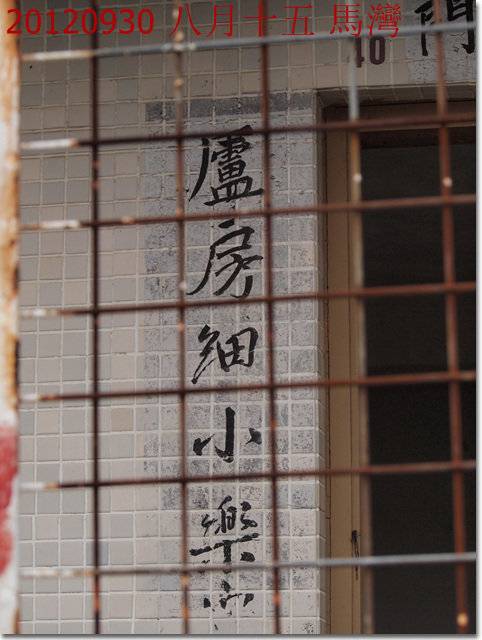 20120930 八月十五 馬灣
40
廬房細小樂